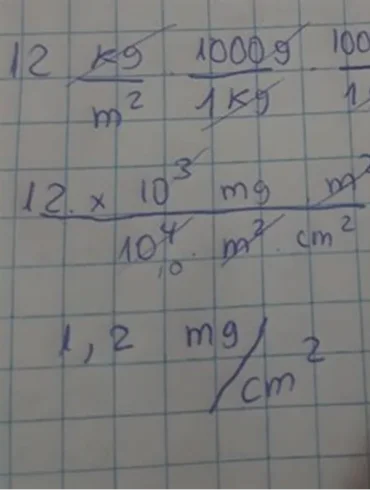 12 kg/m² · 1000g/1kg · 100/1
12 · x 10³ mg m²/10⁴ · m² · cm²
10
1,2 mg/cm²